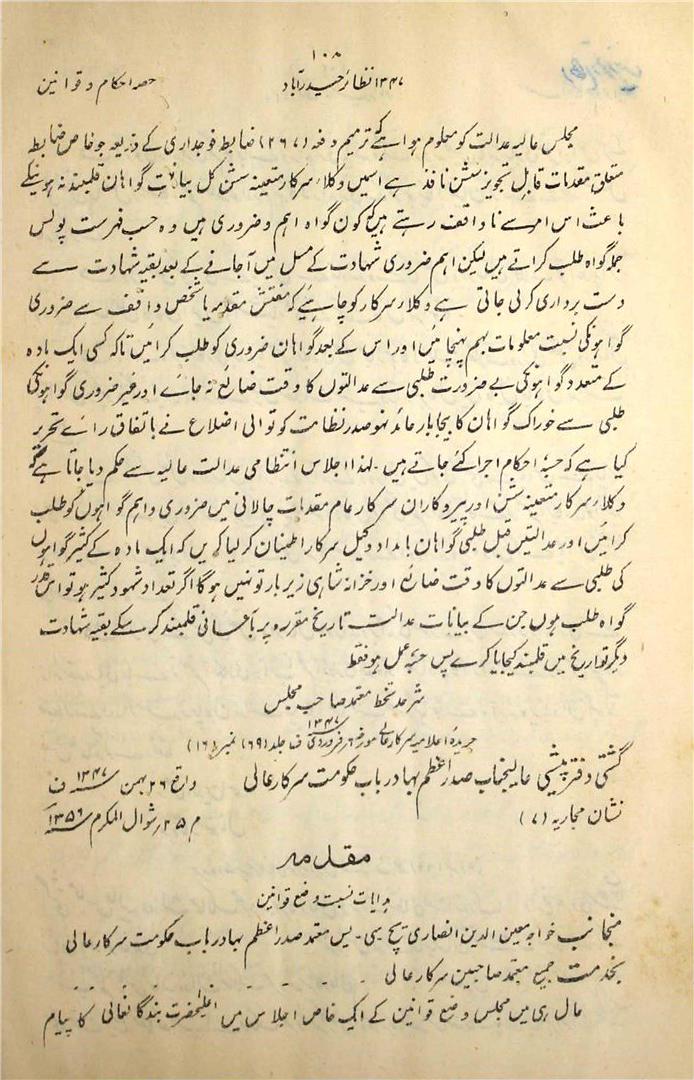 ۱۰۸
۱۳۴۷ نظائر حیدرآباد
حصہ احکام و قوانین
مجلس عالیہ عدالت کو معلوم ہوا ہے کہ ترمیم دفعہ (۲۶۷) ضابطہ فوجداری کے ذریعہ جو خاص ضابطہ
متعلق مقدمات قابل تجویز سشن نافذ ہے اسمیں وکلاء سرکار متعینہ سشن کل بیانات گواہان قلمبند نہ ہونیکے
باعث اس امر سے ناواقف رہتے ہیں کہ کون گواہ اہم و ضروری ہیں وہ حسب فہرست پولس
جملہ گواہ طلب کراتے ہیں لیکن اہم ضروری شہادت کے مسل میں آجانے کے بعد بقیہ شہادت سے
دست برداری کرلی جاتی ہے وکلاء سرکار کو چاہئے کہ مفتش مقدمہ یا شخص واقف سے ضروری
گواہونکی نسبت معلومات بہم پہنچائیں اور اس کے بعد گواہان ضروری کو طلب کرائیں تاکہ کسی ایک مادہ
کے متعدد گواہونکی بے ضرورت طلبی سے عدالتوں کا وقت ضائع نہ جائے اور غیر ضروری گواہونکی
طلبی سے خوراک گواہان کا بیجا بار عائد نہو صدر نظامت کوتوالی اضلاع نے باتفاق رائے تحریر
کیا ہے کہ حسبہٖ احکام اجرا کئے جاتے ہیں۔ لہذا اجلاس انتظامی عدالت عالیہ سے حکم دیا جاتا ہے کہ
وکلاء سرکار متعینہ سشن اور پیروکاران سرکار عام مقدمات چالانی میں ضروری و اہم گواہوں کو طلب
کرائیں اور عدالتیں قبل طلبی گواہان بامداد وکیل سرکار اطمینان کرلیا کریں کہ ایک مادہ کے کثیر گواہوں
کی طلبی سے عدالتوں کا وقت ضائع اور خزانہ شاہی زیربار تو نہیں ہوگا اگر تعداد شہود کثیر ہو تو اسقدر
گواہ طلب ہوں جن کے بیانات عدالت تاریخ مقررہ پر بآسانی قلمبند کرسکے بقیہ شہادت
دیگر تواریخ میں قلمبند کیجایا کرے پس حسبہٖ عمل ہو فقط
شرحدستخط معتمد صاحب مجلس
جریدۂ اعلامیہ سرکارعالی مورخہ ۶ر فروردی ۱۳۴۷ف جلد (۶۹) نمبر (۱۶)
گشتی دفتر پیشی عالیجناب صدر اعظم بہادر باب حکومت سرکار عالی
واقع ۲۶ بہمن ۱۳۴۷ف
نشان مجاریہ (۷)
م ۲۵ر شوال المکرم ۱۳۵۶ھ
مقدمہ
ہدایات نسبت وضع قوانین
منجانب خواجہ معین الدین انصاری یچ۔سی۔یس معتمد صدر اعظم بہادر باب حکومت سرکارعالی
بخدمت جمیع معتمد صاحبین سرکار عالی
حال ہی میں مجلس وضع قوانین کے ایک خاص اجلاس میں اعلیٰحضرت بندگانعالی کا پیام